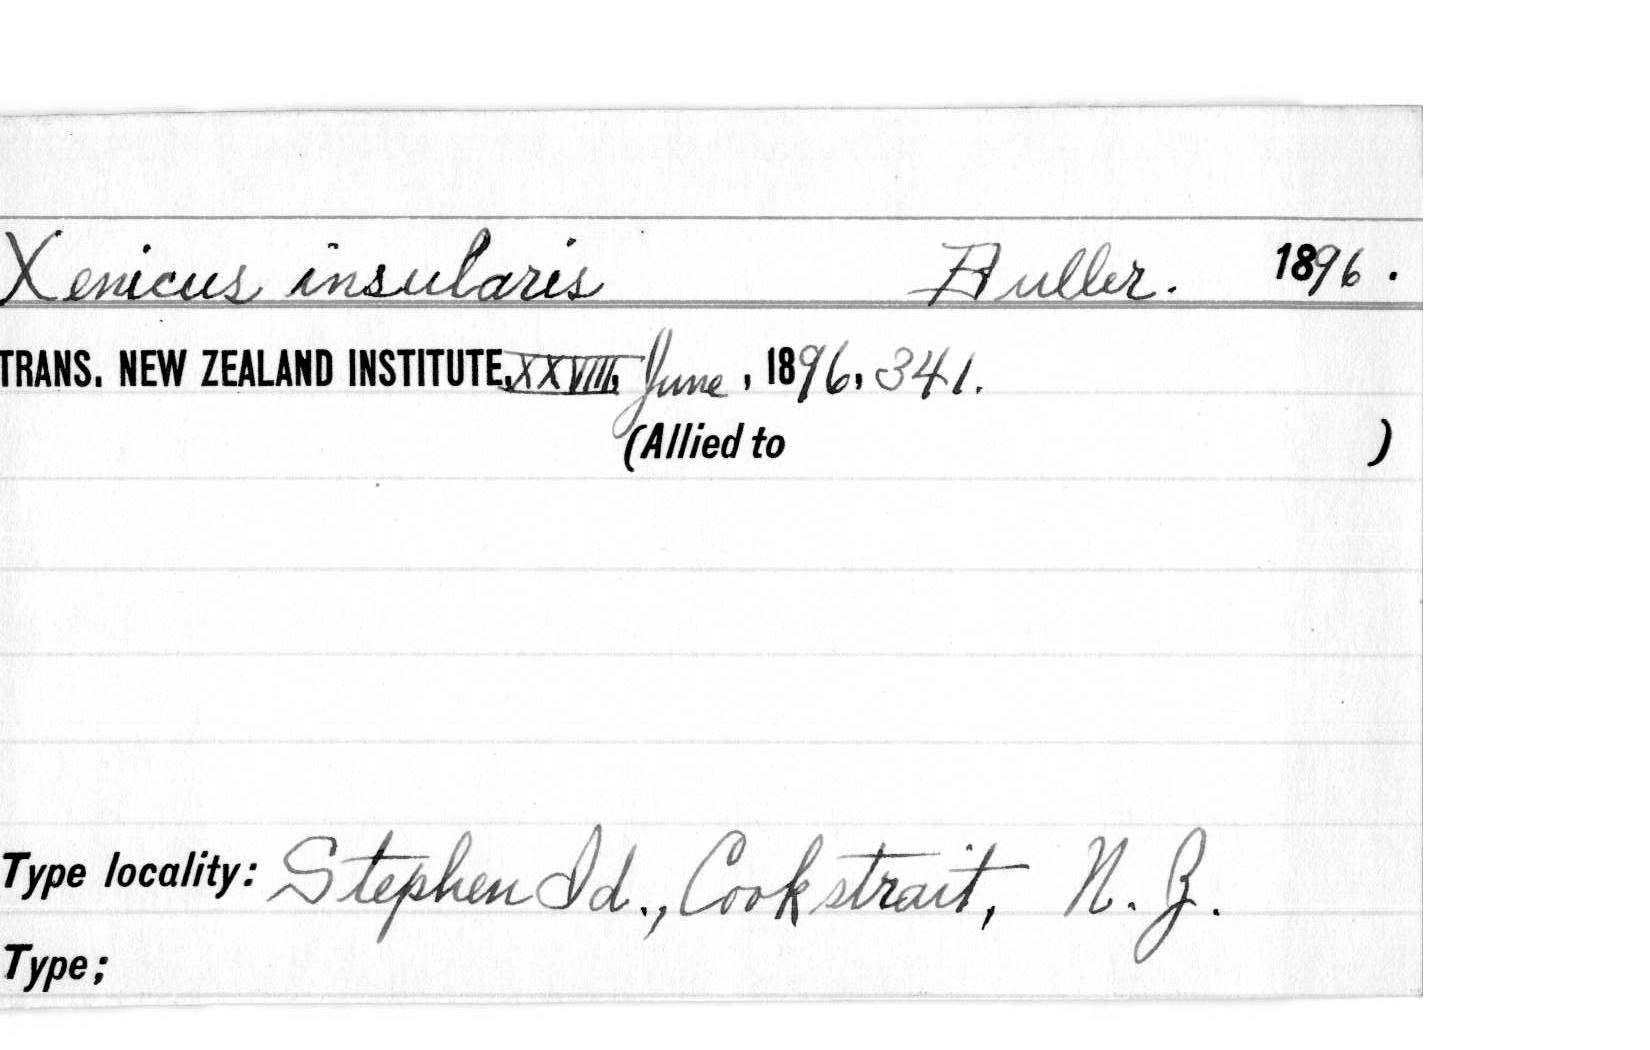 Xenicus insularis Buller. 1896.
TRANS. NEW ZEALAND INSTITUTE, XXVIII, June, 1896, 341.
(Allied to )
Type locality: Stephen Id., Cook strait, N. Z.
Type;